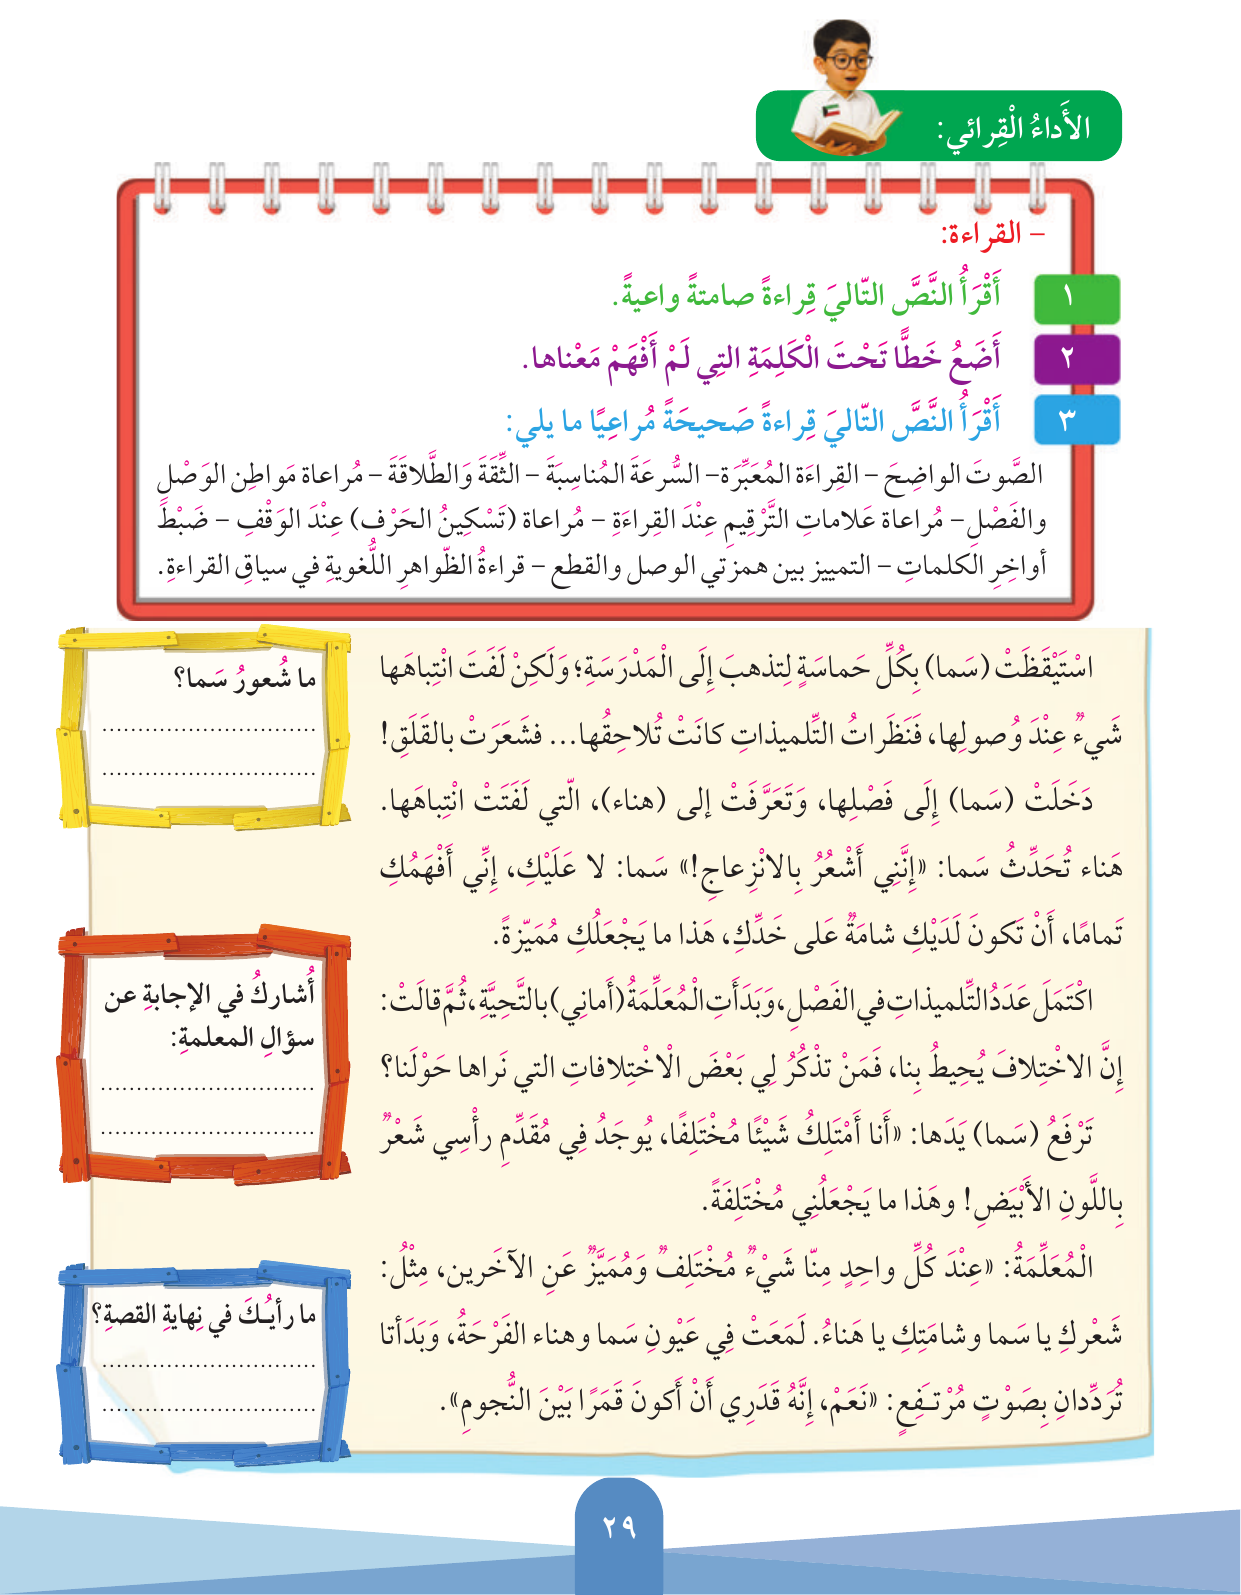 الأَداءُ الْقِرائي:
– القراءة:
١ أَقْرَأُ النَّصَّ التّاليَ قِراءةً صامتةً واعيةً.
٢ أَضَعُ خَطًّا تَحْتَ الْكَلِمَةِ التِي لَمْ أَفْهَمْ مَعْناها.
٣ أَقْرَأُ النَّصَّ التّاليَ قِراءةً صَحيحَةً مُراعِيًا ما يلي:
الصَّوتَ الواضِحَ – القِراءَة المُعَبِّرَة– السُّرعَةَ المُناسِبَةَ – الثِّقَةَ وَالطَّلاقَةَ – مُراعاة مَواطِن الوَصْلِ
والفَصْلِ– مُراعاة عَلاماتِ التَّرْقِيمِ عِنْدَ القِراءَةِ – مُراعاة (تَسْكِينُ الحَرْف) عِنْدَ الوَقْفِ – ضَبْطَ
أواخِرِ الكلماتِ – التمييز بين همزتي الوصل والقطع – قراءةُ الظّواهرِ اللُّغويةِ في سياقِ القراءةِ.
اسْتَيْقَظَتْ (سَما) بِكُلِّ حَماسَةٍ لِتذهبَ إِلَى الْمَدْرَسَةِ؛ وَلَكِنْ لَفَتَ انْتِباهَها
شَيءٌ عِنْدَ وُصولِها، فَنَظَراتُ التِّلميذاتِ كانَتْ تُلاحِقُها... فشَعَرَتْ بالقَلَقِ!
دَخَلَتْ (سَما) إِلَى فَصْلِها، وَتَعَرَّفَتْ إلى (هناء)، الّتي لَفَتَتْ انْتِباهَها.
هَناء تُحَدِّثُ سَما: «إِنَّنِي أَشْعُرُ بِالانْزِعاجِ!» سَما: لا عَلَيْكِ، إِنِّي أَفْهَمُكِ
تَمامًا، أَنْ تَكونَ لَدَيْكِ شامَةٌ عَلى خَدِّكِ، هَذا ما يَجْعَلُكِ مُمَيّزةً.
اكْتَمَلَ عَدَدُ التِّلميذاتِ في الفَصْلِ، وَبَدَأَتِ الْمُعَلِّمَةُ (أَمانِي) بالتَّحِيَّةِ، ثُمَّ قالَتْ:
إِنَّ الاخْتِلافَ يُحِيطُ بِنا، فَمَنْ تذْكُرُ لِي بَعْضَ الْاخْتِلافاتِ التي نَراها حَوْلَنا؟
تَرْفَعُ (سَما) يَدَها: «أَنا أَمْتَلِكُ شَيْئًا مُخْتَلِفًا، يُوجَدُ فِي مُقَدِّمِ رأْسِي شَعْرٌ
بِاللَّونِ الأَبْيَضِ! وهَذا ما يَجْعَلُنِي مُخْتَلِفَةً.
الْمُعَلِّمَةُ: «عِنْدَ كُلِّ واحِدٍ مِنّا شَيْءٌ مُخْتَلِفٌ وَمُمَيَّزٌ عَنِ الآخَرين، مِثْلُ:
شَعْركِ يا سَما وشامَتِكِ يا هَناءُ. لَمَعَتْ فِي عَيْونِ سَما وهناء الفَرْحَةُ، وَبَدَأتا
تُرَدِّدانِ بِصَوْتٍ مُرْتَـفِعٍ: «نَعَمْ، إِنَّهُ قَدَرِي أَنْ أَكونَ قَمَرًا بَيْنَ النُّجومِ».
ما شُعورُ سَما؟
..............................
..............................
أُشاركُ في الإجابةِ عن
سؤالِ المعلمةِ:
..............................
..............................
ما رأيـُكَ في نِهايةِ القصةِ؟
..............................
..............................
٢٩